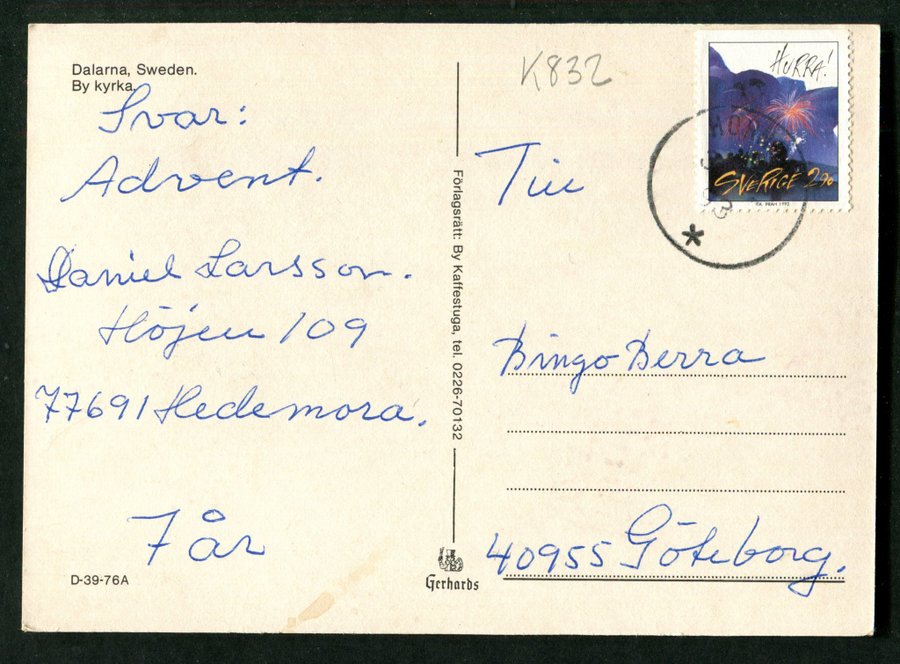 Dalarna, Sweden.
By kyrka.
Svar:
Advent.
Daniel Larsson.
Höjen 109
77691 Hedemora.
7 år
D-39-76A
Förlagsrätt: By Kaffestuga, tel. 0226-70132
Gerhards
K832
HURRA!
SVERIGE 2.90
Till
Bingo Berra
40955 Göteborg.